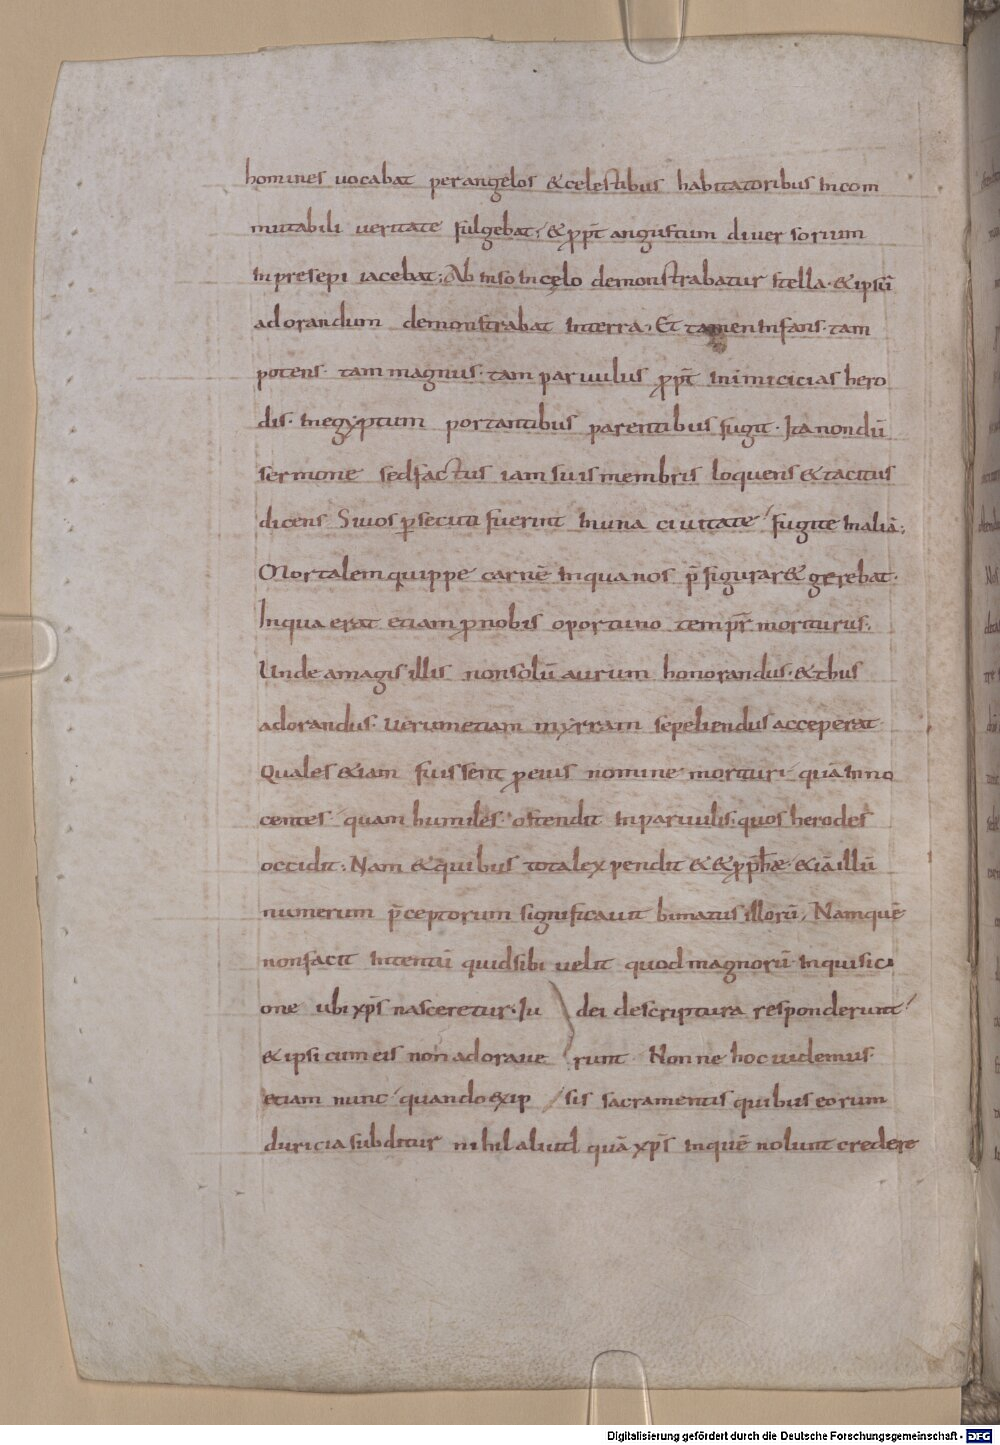 homines uocabat per angelos & celestibus habitatoribus incom
mutabili ueritate fulgebat, & ꝓpt̄ angustum diuer sorium
in presepi iacebat; Ab inso in cęlo demonstrabatur stella · & ipsū
adorandum demonstrabat in terra, Et tamen infans · tam
potens · tam magnus · tam paruulus ꝓpt̄ inimicicias hero
dis · in egyptum portantibus parentibus fugit · Ita nondū
sermone sed factus iam suis membris loquens & tacitus
dicens Si uos ꝑsecuti fuerint in una ciuitate fugite in aliā;
Mortalem quippe carnē in qua nos p̄figurar& gerebat ·
In qua erat etiam ꝓ nobis oportuno tempr̄ moriturus;
Unde a magis illis non solū aurum honorandus · & thus
adorandus · uerum etiam myrram sepeliendus acceperat ·
Quales &iam fuissent ꝓ eius nomine morituri quā inno
centes quam humiles · ostendit in paruulis · quos herodes
occidit; Nam & quibus total expendit & & ꝓph̄æ &iā illū
numerum p̄ceptorum significauit bimatus illorū, Namquē
non facit intentū quid sibi uelit quod magnorū inquisici
one ubi xp̄s nasceretur · Iu dei de scriptura responderunt
& ipsi cum eis non adoraue runt · Nonne hoc uidemus
etiam nunc quando & ip sis sacramentis quibus eorum
duricia subditur nihil aliud quā xp̄s in quē nolunt credere
Digitalisierung gefördert durch die Deutsche Forschungsgemeinschaft - DFG